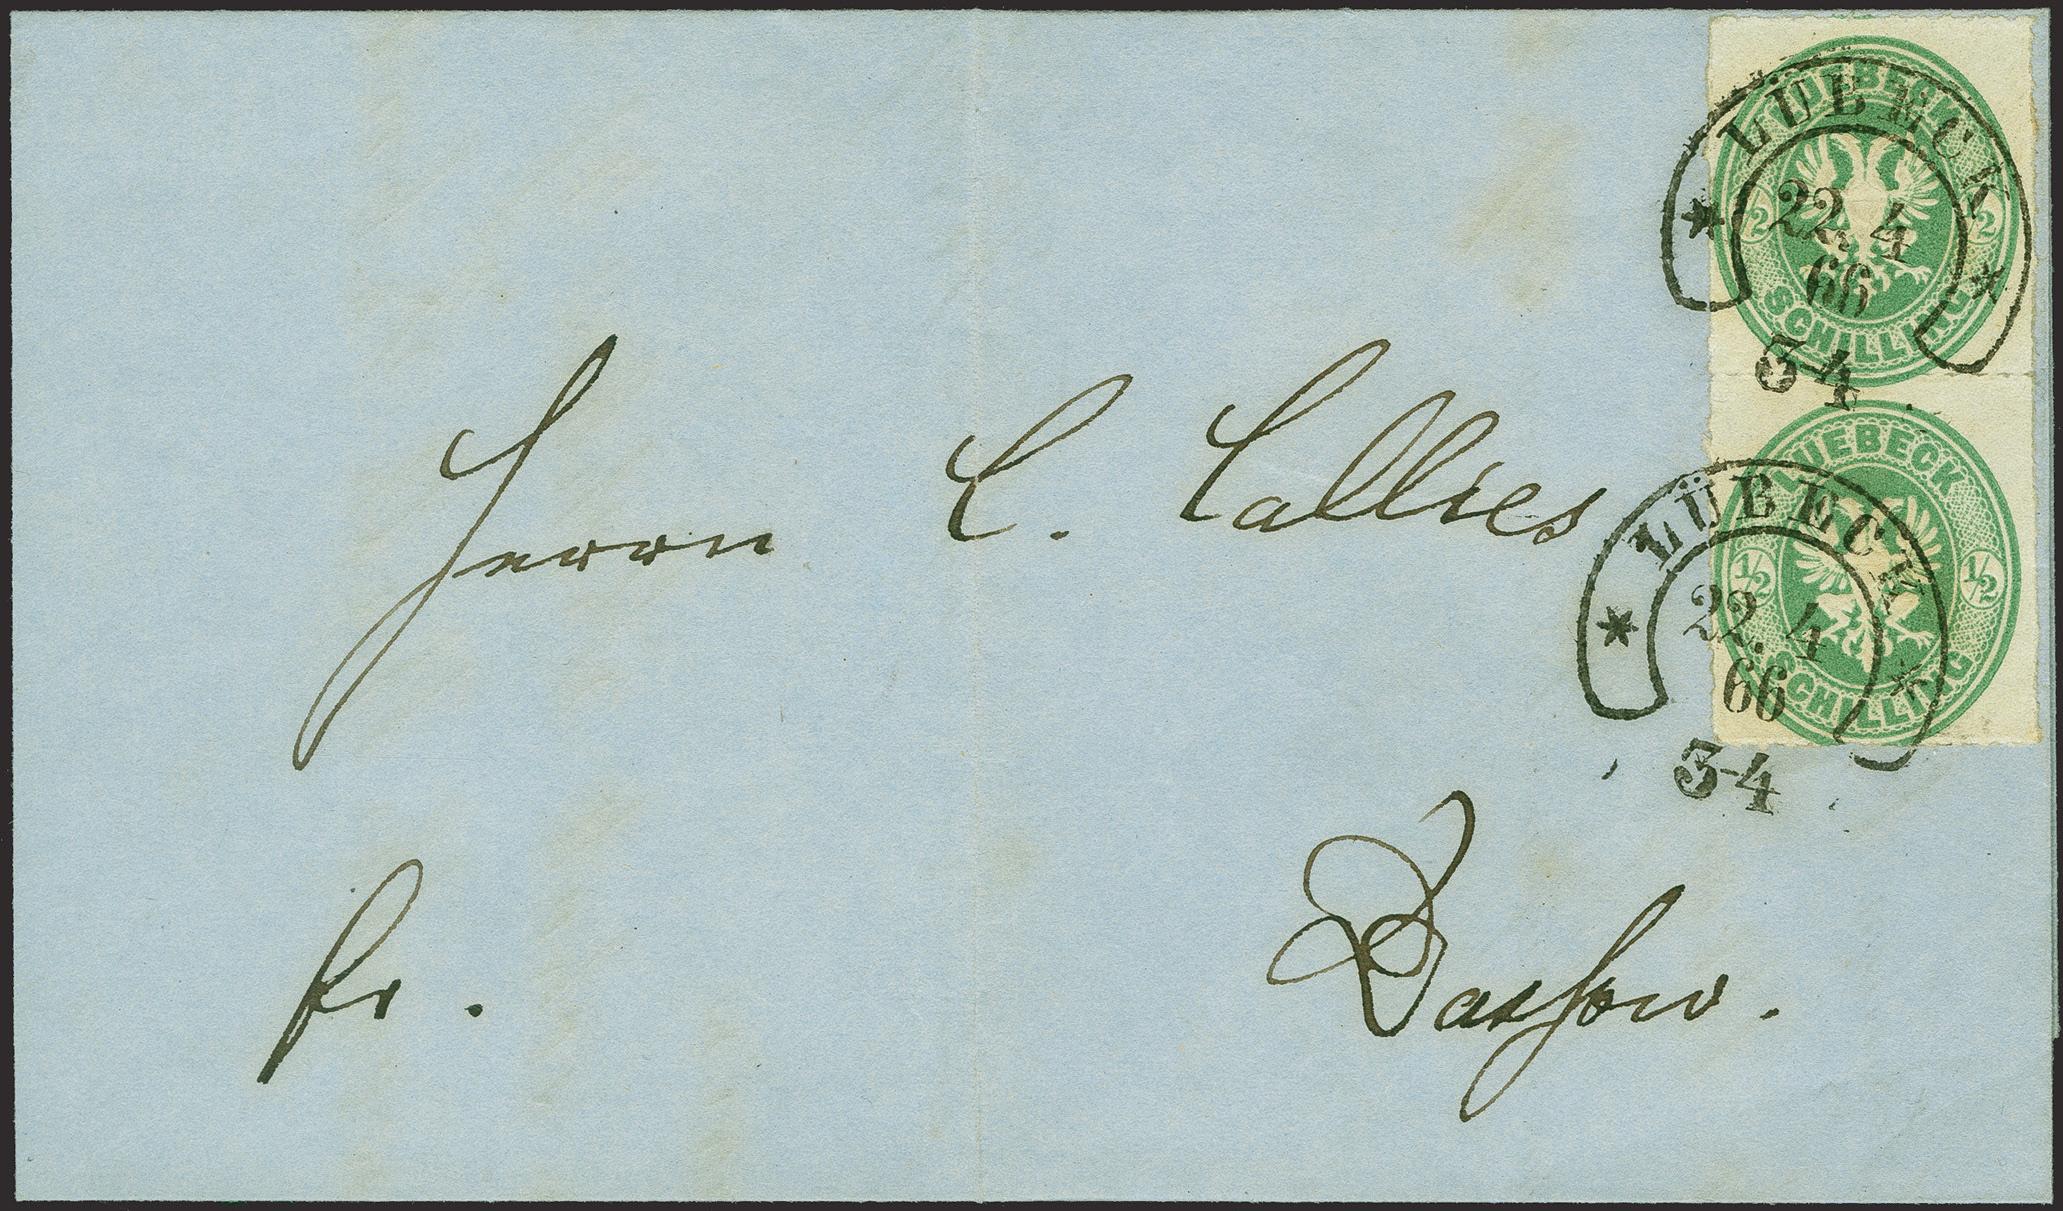 LUEBECK
½ ½
SCHILLING
LÜBECK
22. 4
66
3-4
LUEBECK
½ ½
SCHILLING
LÜBECK
22. 4
66
3-4
Herrn C. Callies
fr. Dassow.